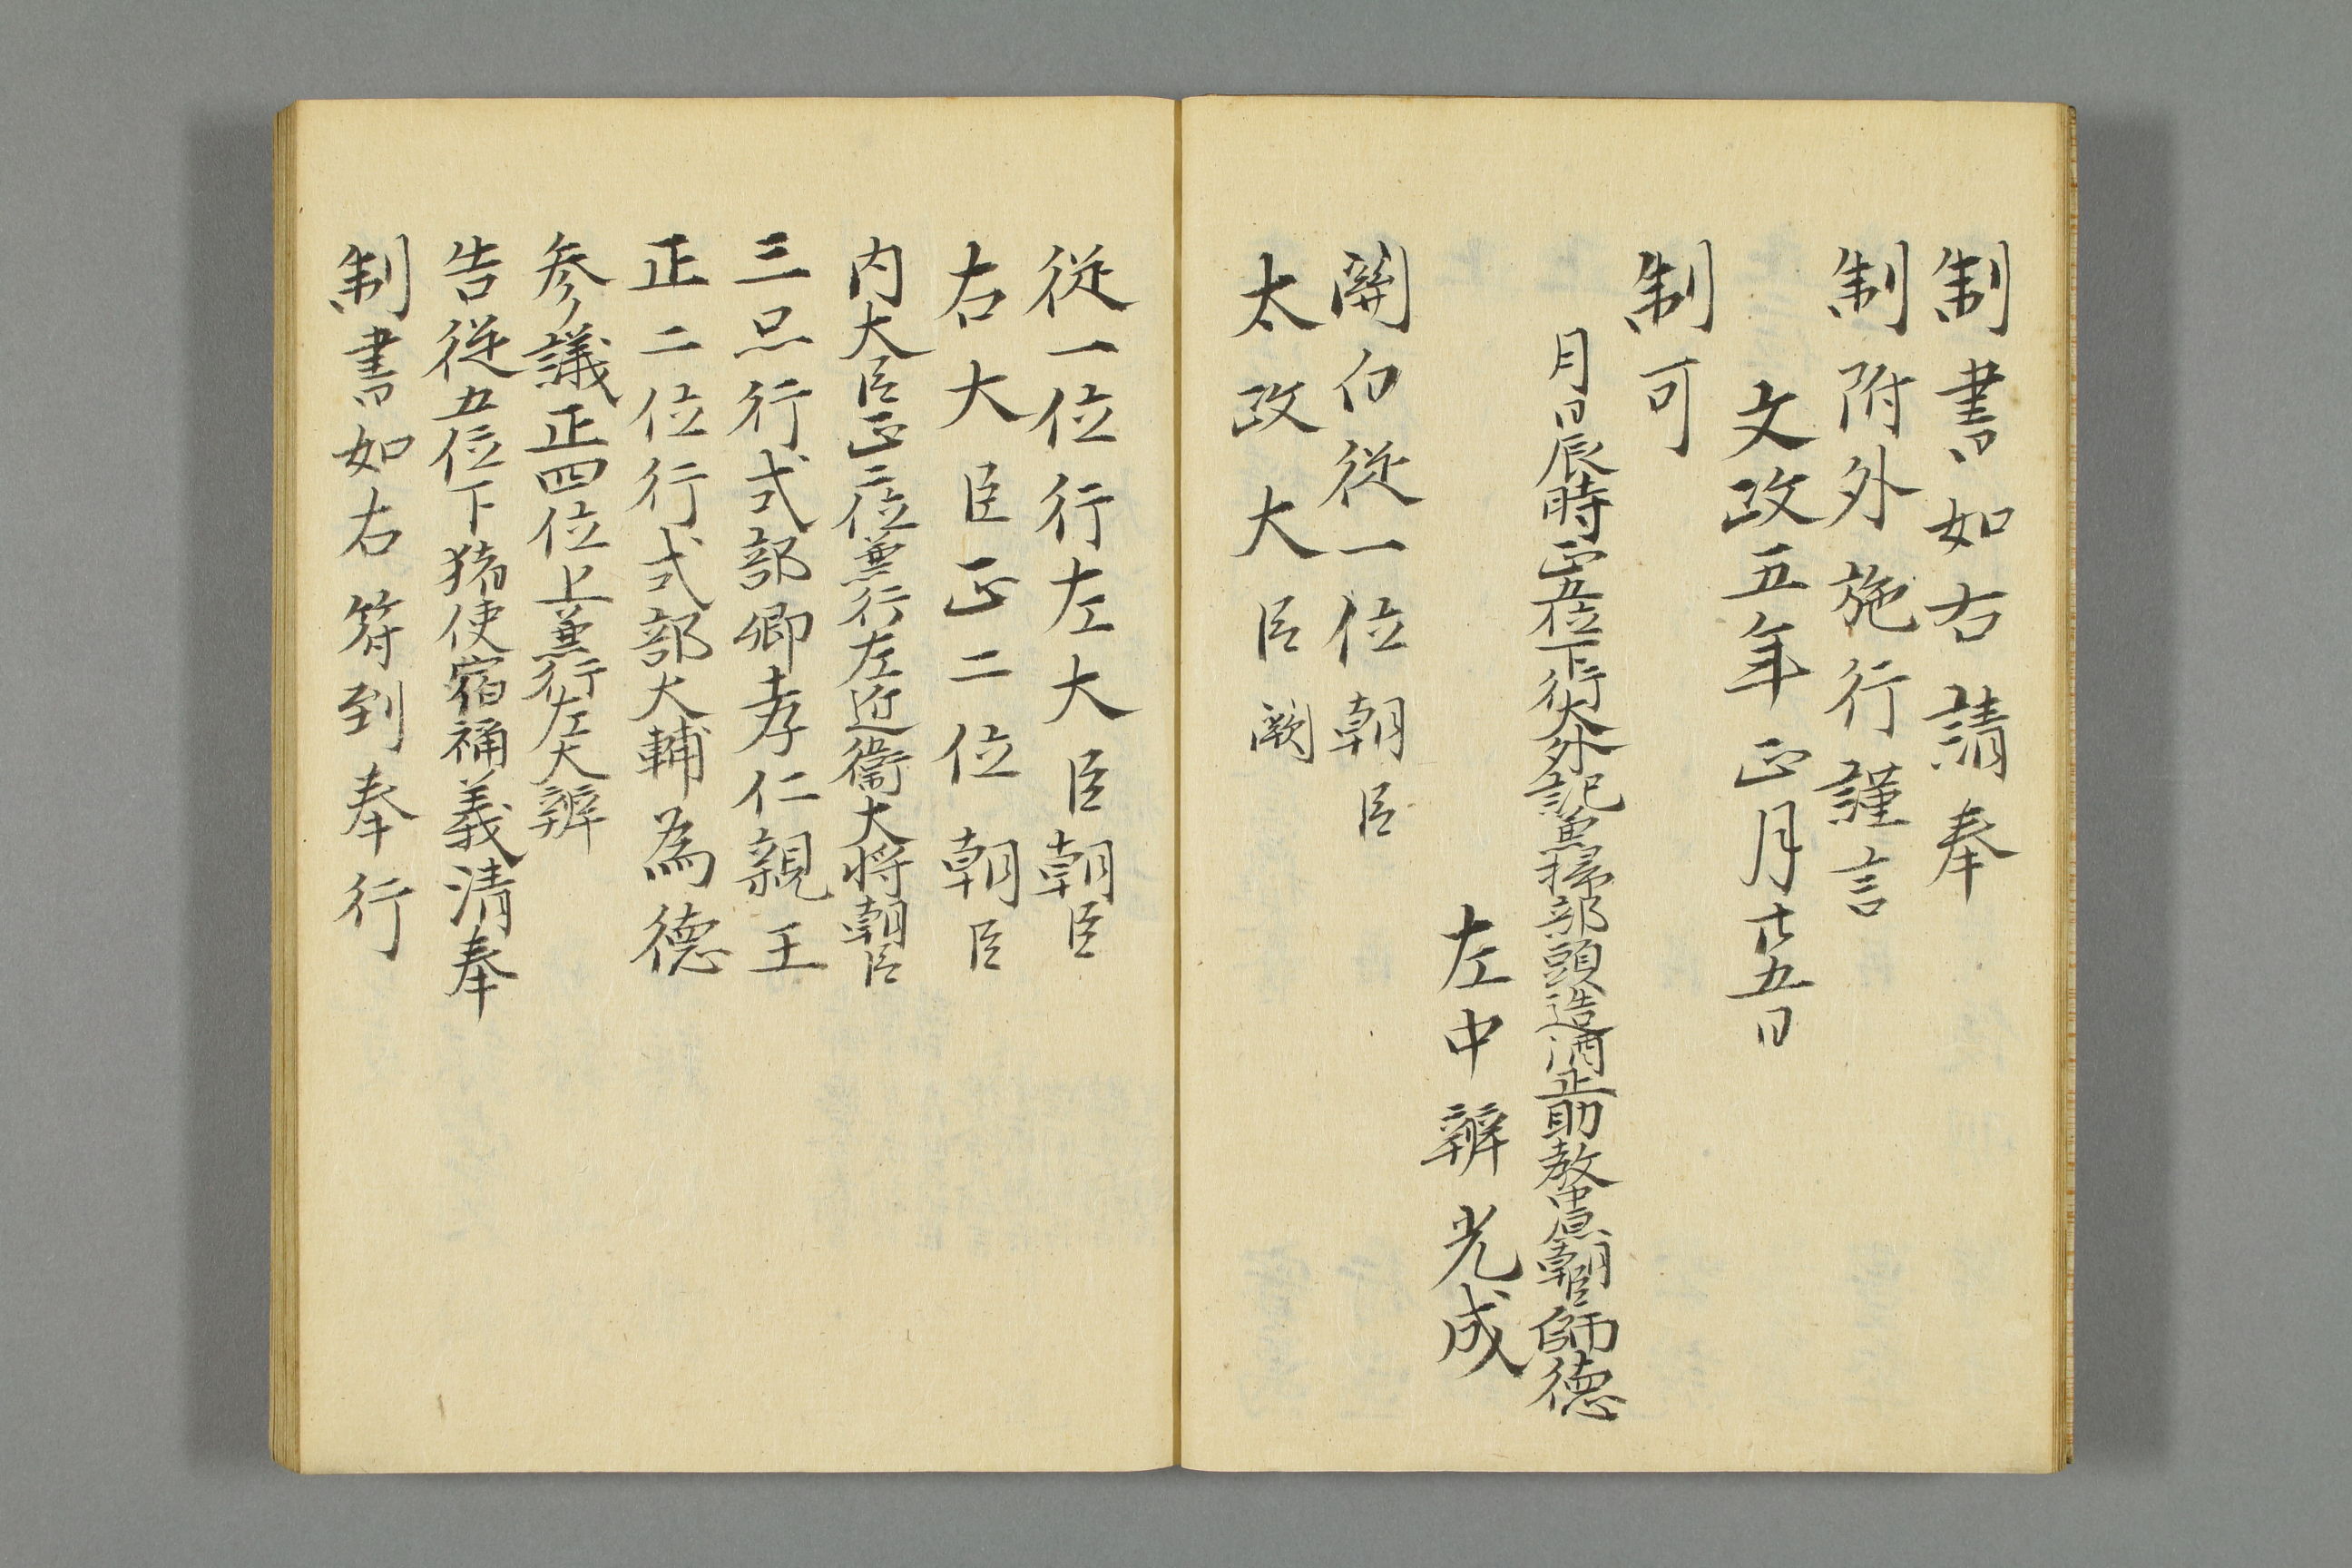 制書如右請奉
制附外施行謹言
文政五年正月廿五日
制可
月日辰時正五位下行大外記兼掃部頭造酒正助教中原朝臣師徳
左中辨光成
關白從一位朝臣
太政大臣闕
從一位行左大臣朝臣
右大臣正二位朝臣
内大臣正二位兼行左近衞大将朝臣
三品行式部卿孝仁親王
正二位行式部大輔為徳
参議正四位上兼行左大辨
告從五位下猪使宿祢義清奉
制書如右符到奉行